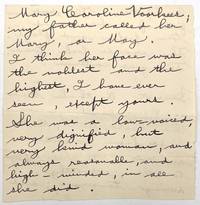 Mary Caroline Voorhees;
my father called her
Mary, or May.
I think her face was
the noblest and the
highest, I have ever
seen, except yours.
She was a low-voiced,
very dignified, but
very kind woman, and
always reasonable, and
high-minded, in all
she did.